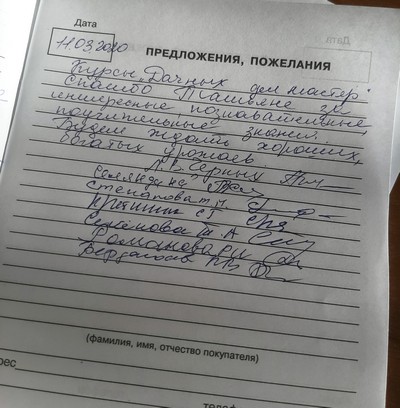 Дата
11.03.2020
ПРЕДЛОЖЕНИЯ, ПОЖЕЛАНИЯ
Курсы "Дачных дел мастер"
Спасибо Татьяне за
интересные познавательные,
поучительные знания.
Будем ждать хороших,
богатых урожаев
Л.В. Черных
Степанова Т.
Семёнова Т. А
Романова
(фамилия, имя, отчество покупателя)
рес
телеф